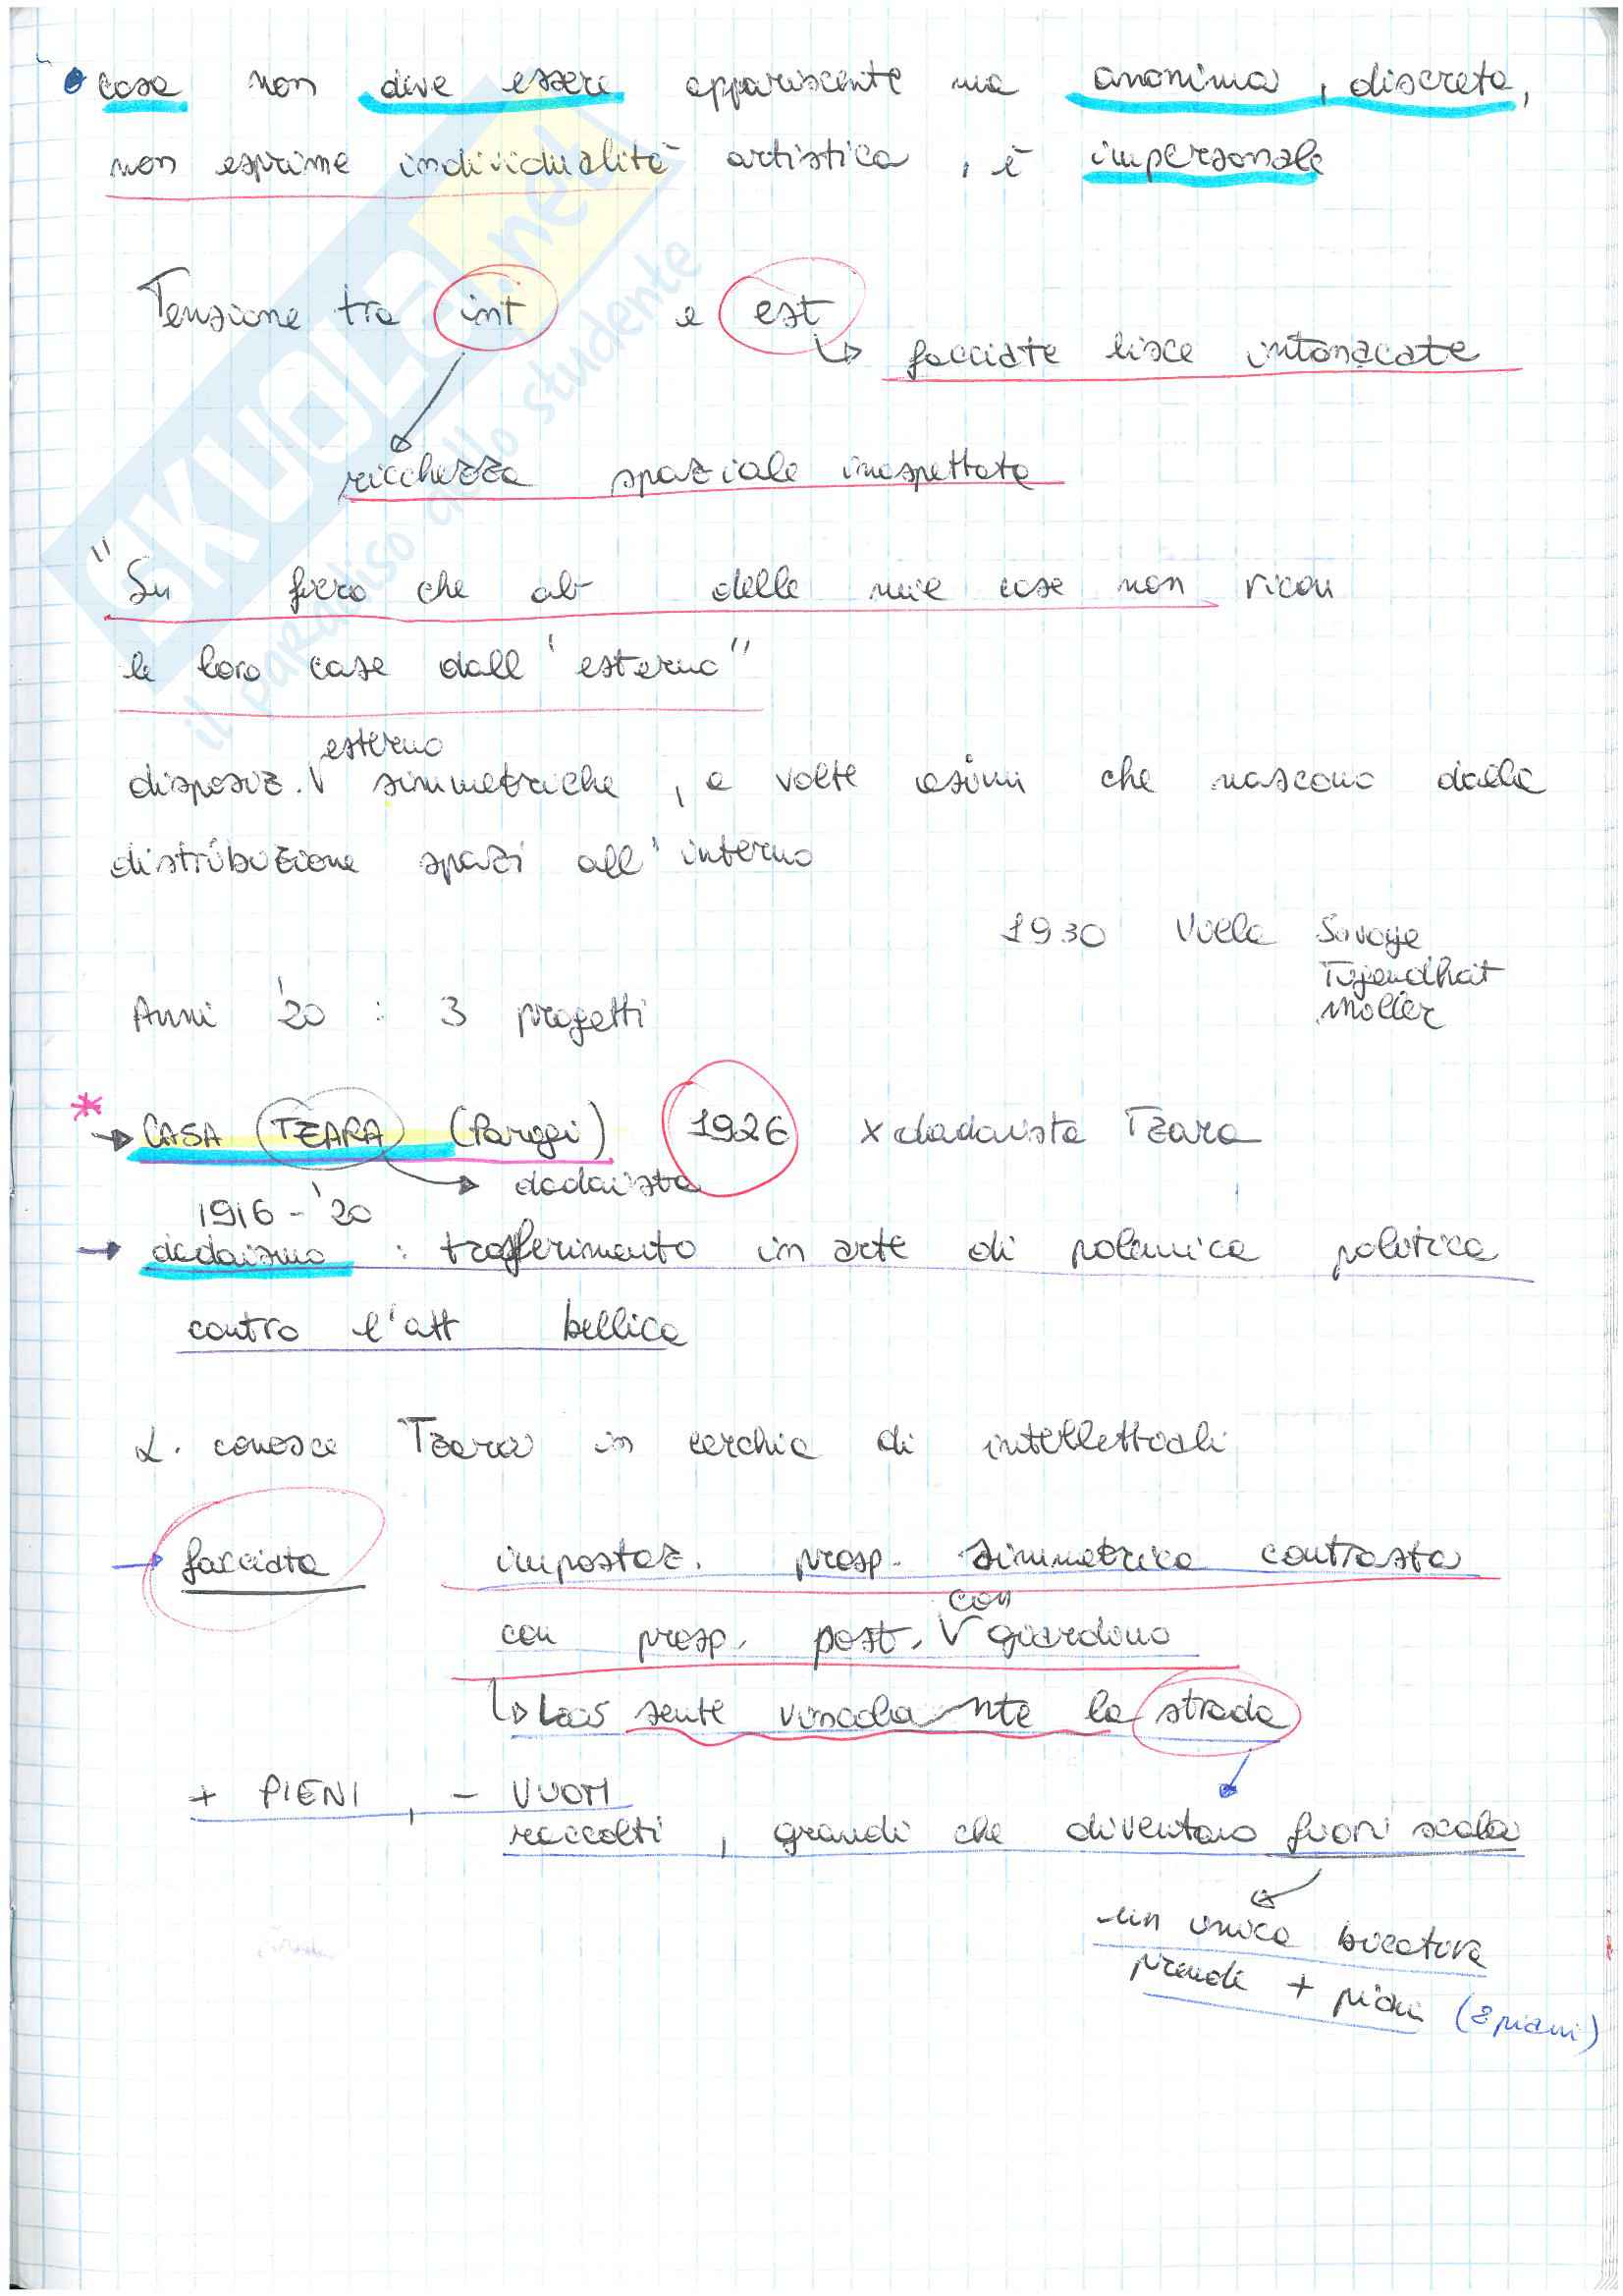 casa non deve essere appariscente ma anonima, discreta,
non esprime individualità artistica, è impersonale
Tensione tra int e est
↳ facciate lisce intonacate
ricchezza spaziale inaspettata
"Su fiero che ab delle mie case non ricon
le loro case dall'esterno"
esterno
disposiz. V simmetriche, a volte asimm che nascono dalla
distribuzione spazi all'interno
1930 Villa Savoye
Tugendhat
Moller
Anni '20 : 3 progetti
* → CASA TZARA (Parigi) 1926 x dadaista Tzara
→ dadaista
1916-'20
→ dadaismo : trasferimento in arte di polemica politica
contro l'att bellica
L. conosce Tzara in cerchia di intellettuali
→ facciata impostaz. prosp. simmetrica contrasta
con
con prosp. post. V giardino
↳ Loos sente vincolante la strada
+ PIENI, - VUOTI
raccolti, grandi che diventano fuori scala
un'unica bucatura
prende + piani (2 piani)
SKUOLA.net
il paradiso dello studente